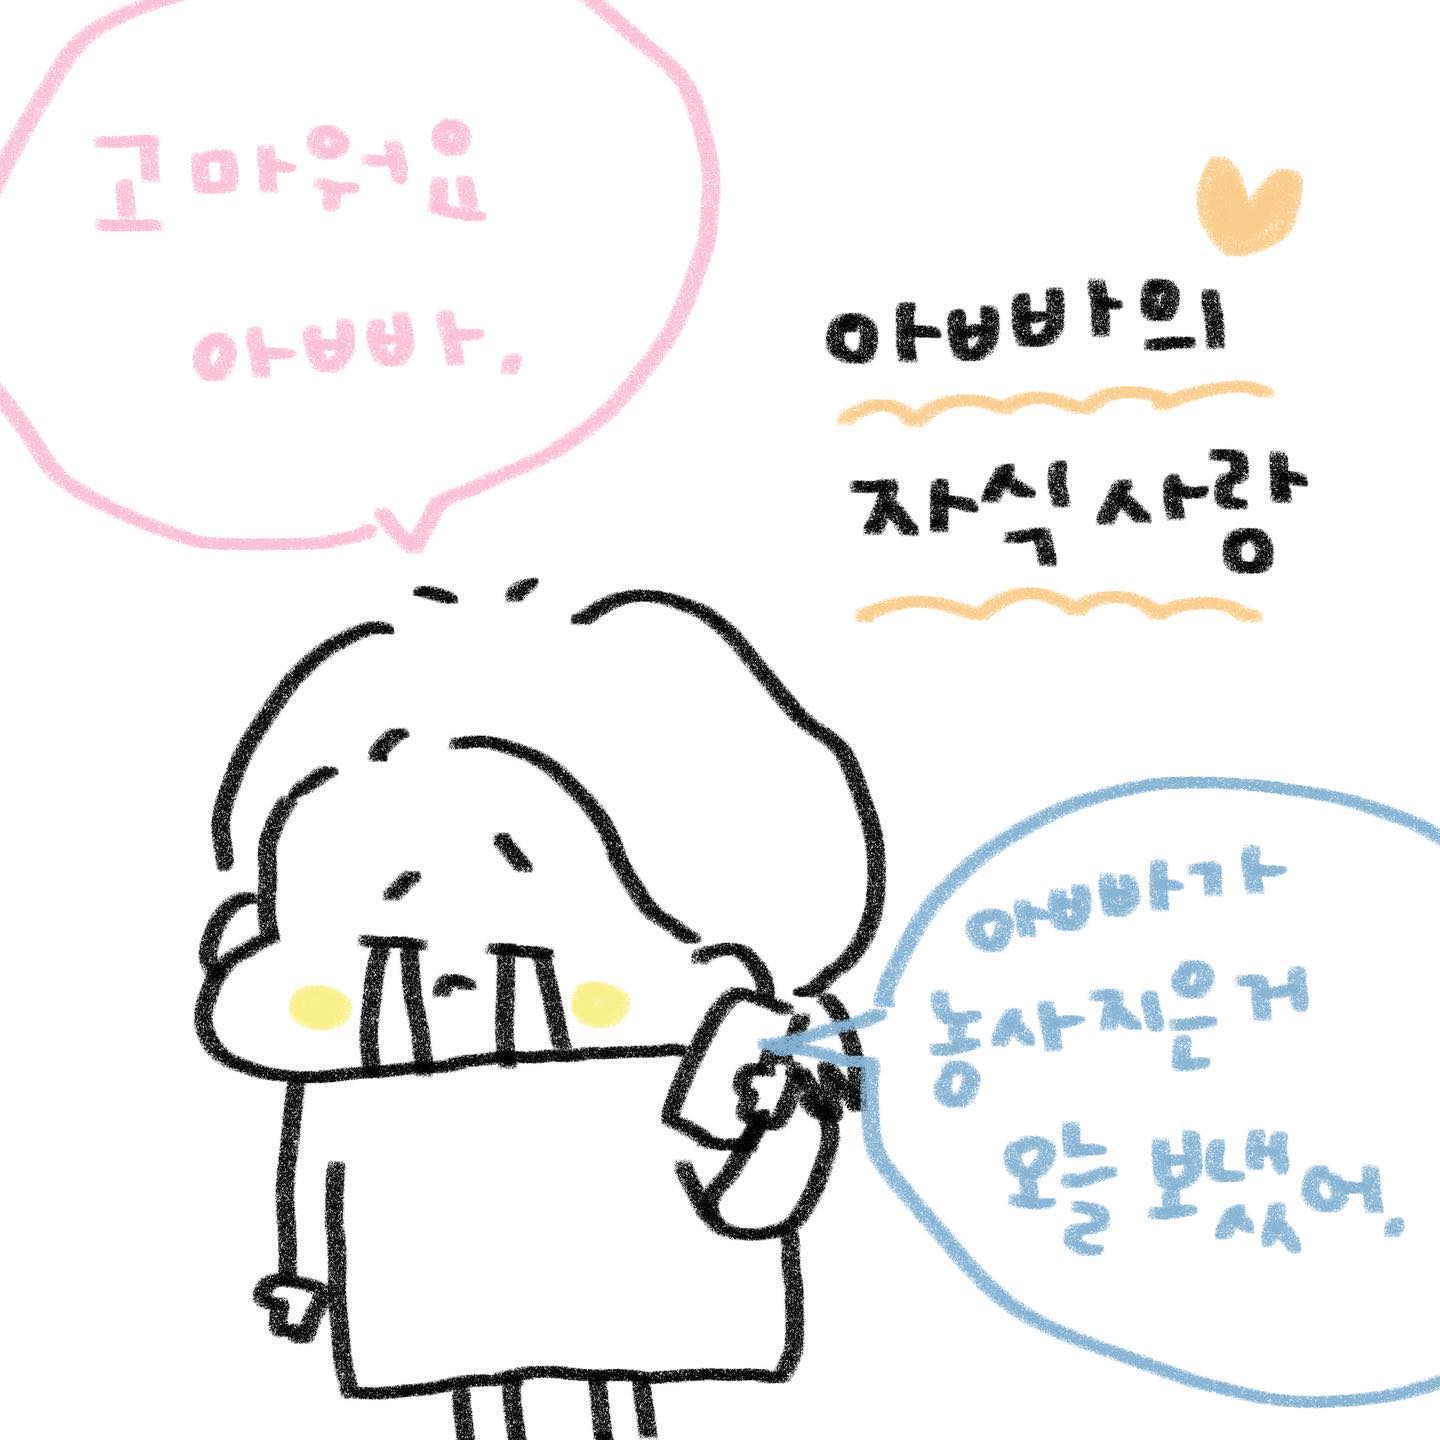 고마워요
아빠.
아빠의
자식사랑
아빠가
농사지은거
오늘 보냈어.